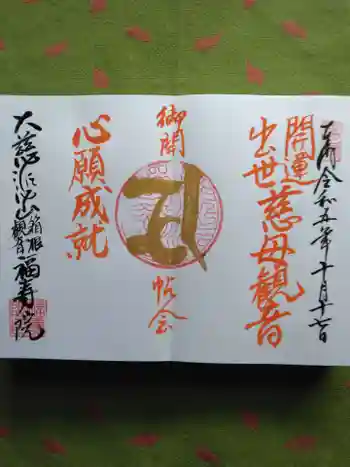 奉拝 令和五年十月十七日
開運
出世 慈母観音
御開帖会
心願成就
大慈派山 箱根観音 福寿院